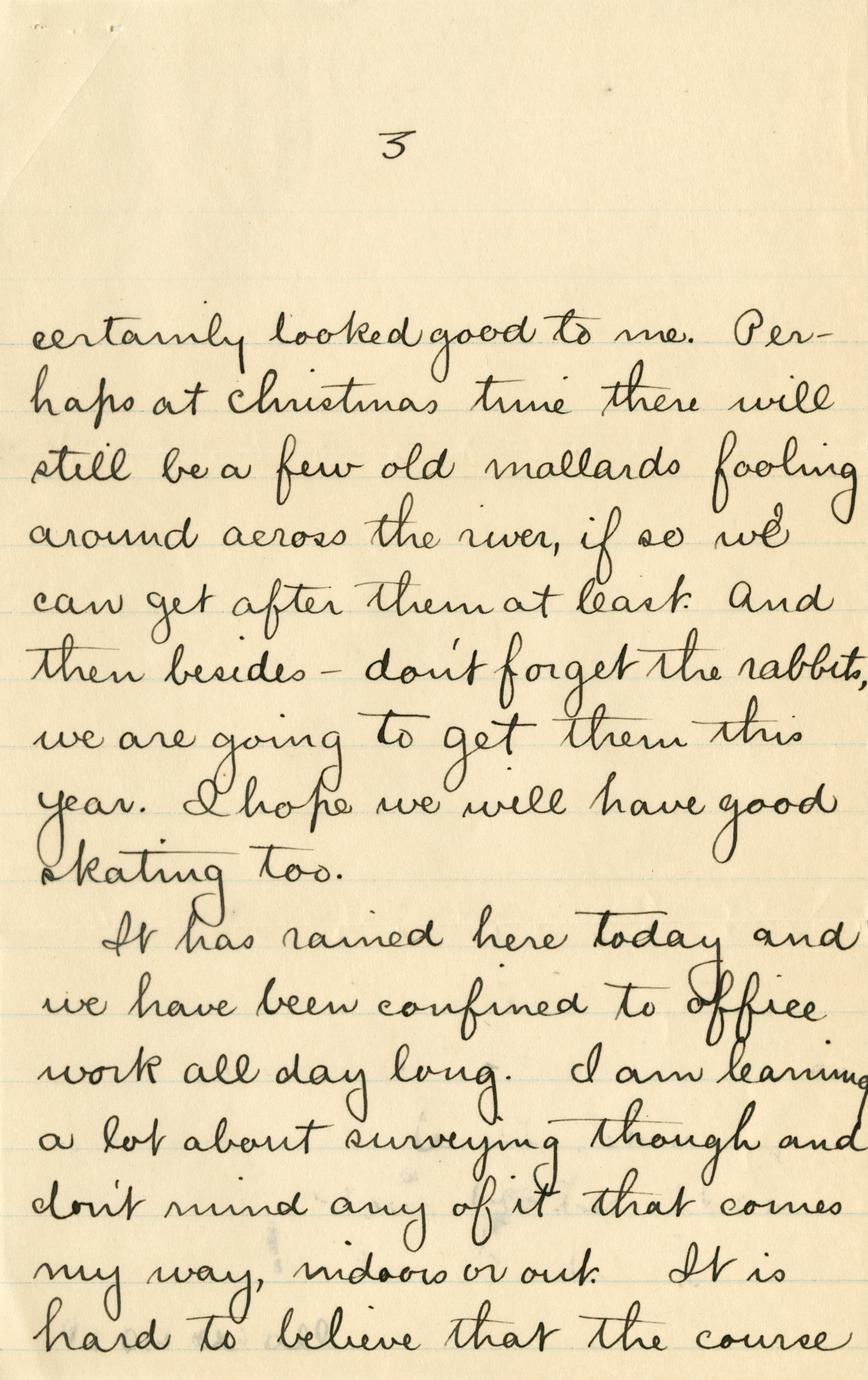 3
certainly looked good to me. Per-
haps at Christmas time there will
still be a few old mallards fooling
around across the river, if so we
can get after them at least. And
then besides - don't forget the rabbits,
we are going to get them this
year. I hope we will have good
skating too.
It has rained here today and
we have been confined to office
work all day long. I am learning
a lot about surveying though and
don't mind any of it that comes
my way, indoors or out. It is
hard to believe that the course